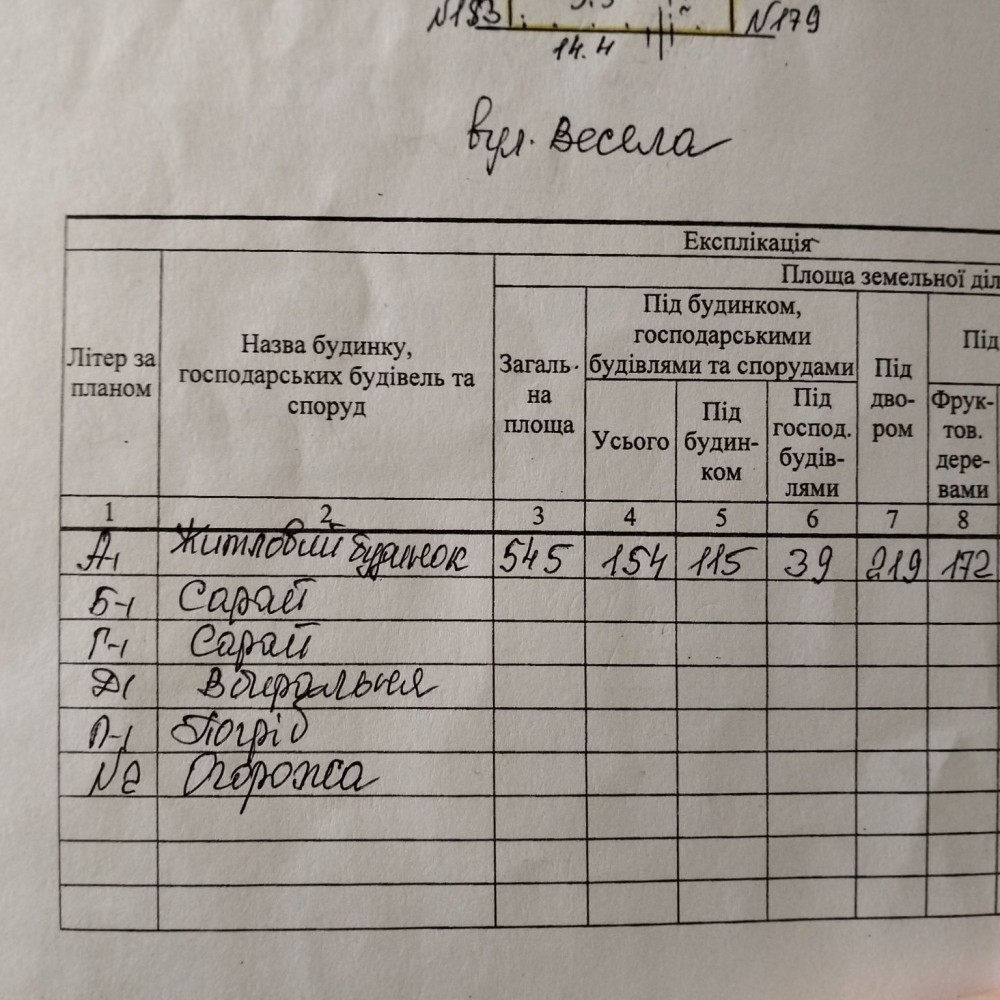 №183 №179
14.4
вул. Весела
Експлікація
Площа земельної діл
Літер за планом
Назва будинку, господарських будівель та споруд
Загаль-на площа
Під будинком, господарськими будівлями та спорудами
Усього
Під будин-ком
Під господ. будів-лями
Під дво-ром
Під
Фрук-тов. дере-вами
1 2 3 4 5 6 7 8
А-1 Житловий будинок 545 154 115 39 219 172
Б-1 Сарай
Г-1 Сарай
Д-1 Вбиральня
П-1 Погріб
№2 Огорожа